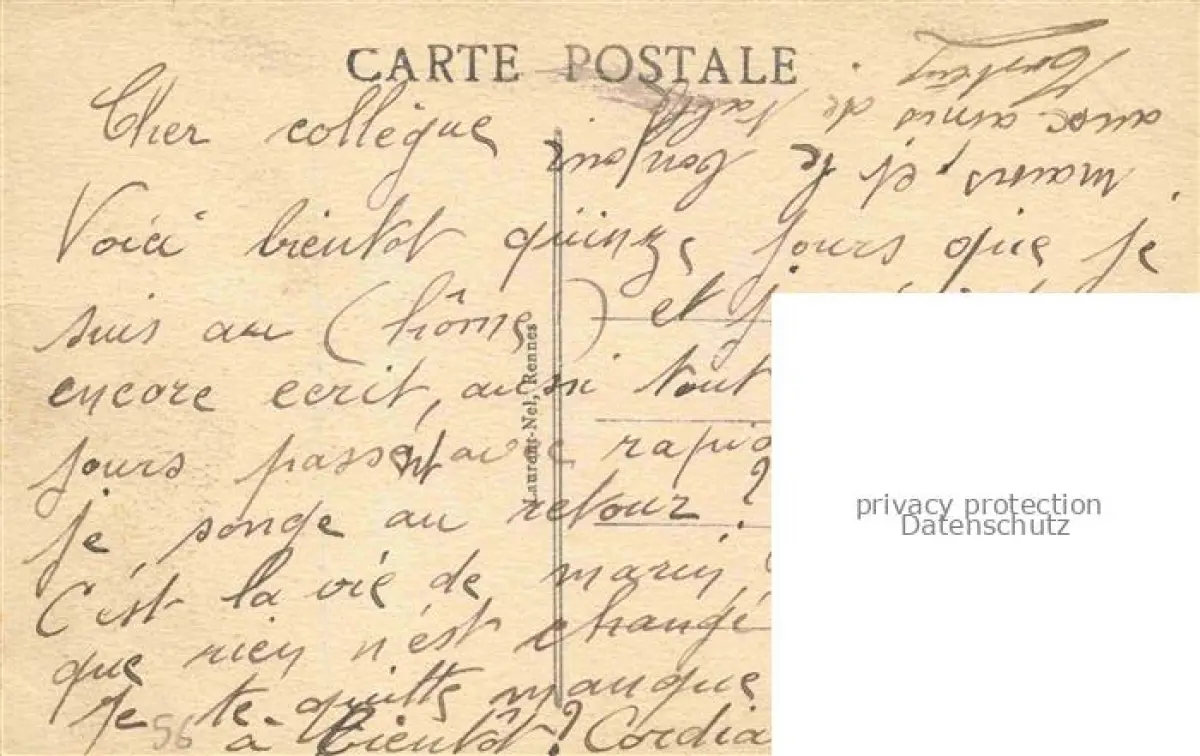 CARTE POSTALE
Cher collègue
Voici bientot quinze jours que je
suis au (hôme) et
encore ecrit, aussi tout
jours passent avec
je songe au retour?
C'est la vie de marin,
que rien n'est changé
je te quitte manque
à bientôt? Cordia
mains, et le bonjour
aux amis de
Laurent-Nel, Rennes
56
privacy protection
Datenschutz